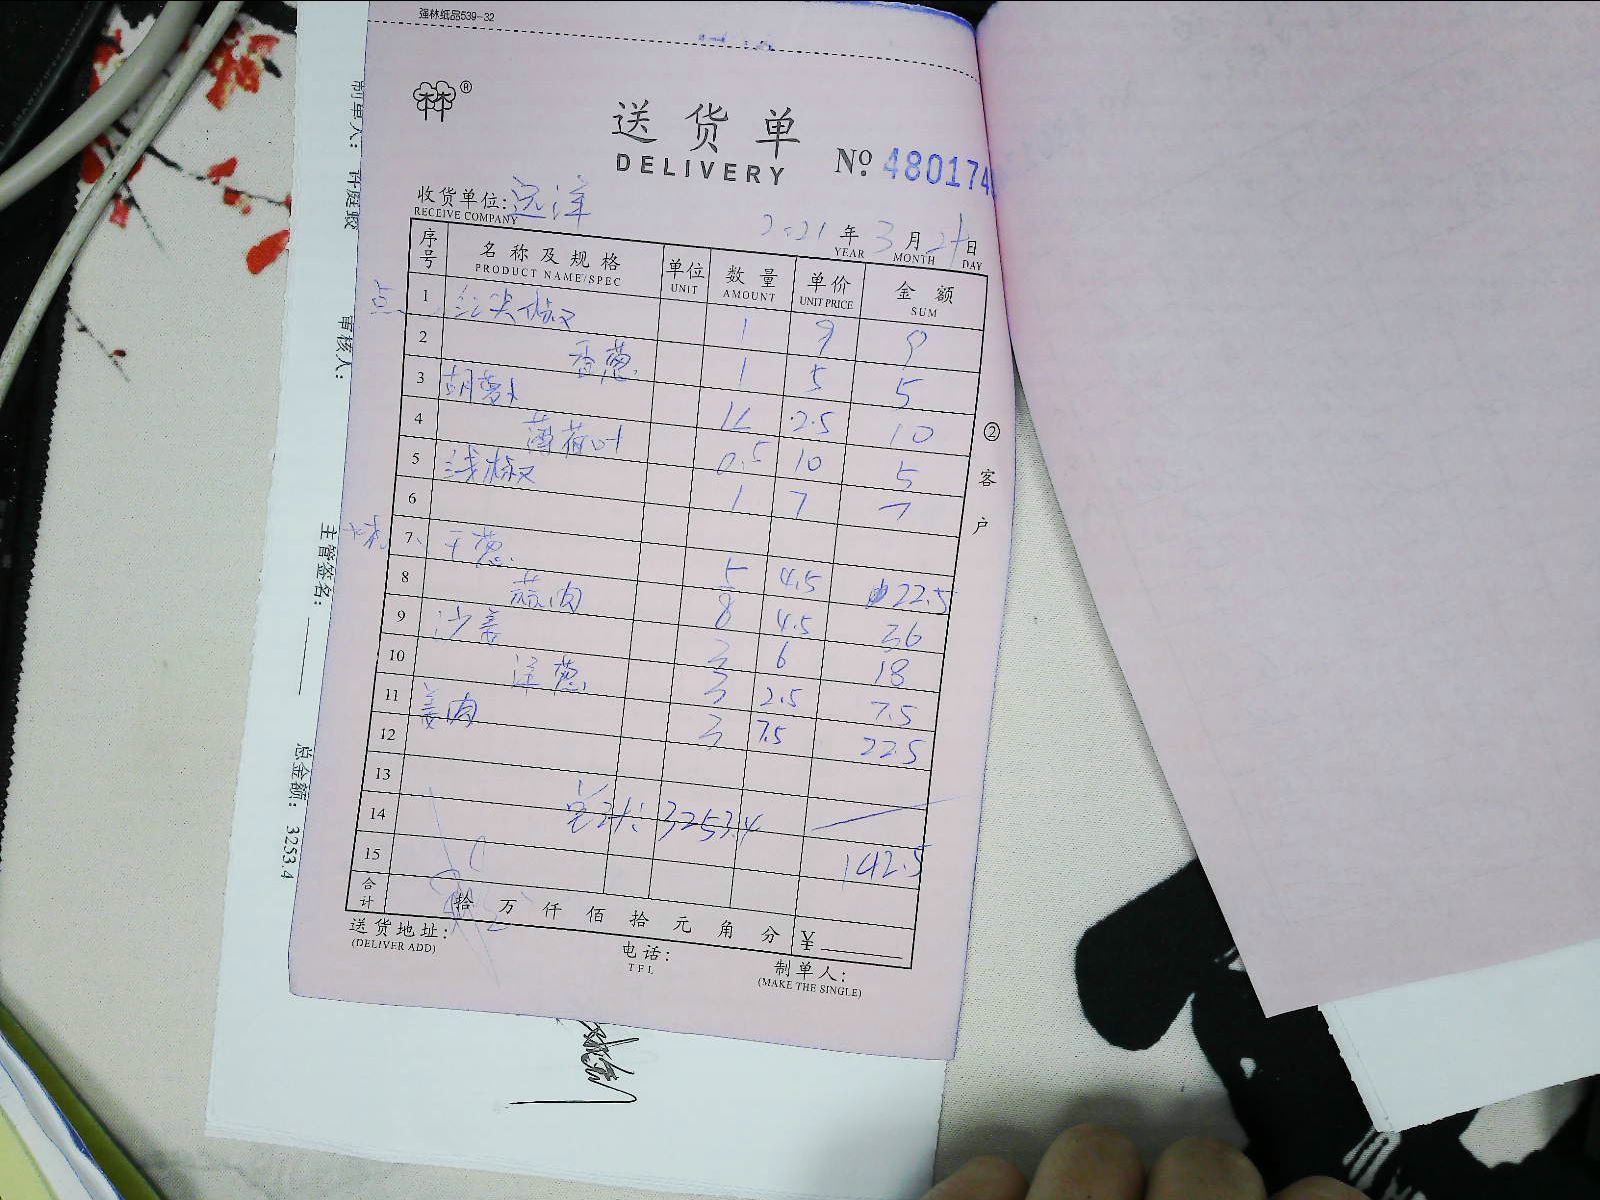 强林纸品539-32
送货单
DELIVERY
№ 480174
收货单位: 远洋
RECEIVE COMPANY
2021 年 3 月 21 日
YEAR MONTH DAY
序号 名称及规格 单位 数量 单价 金额
PRODUCT NAME/SPEC UNIT AMOUNT UNIT PRICE SUM
点 1 红尖椒 1 9 9
2 香葱 1 5 5
3 胡萝卜 14 2.5 10
4 薄荷叶 0.5 10 5
5 线椒 1 7 7
6
7 干葱 5 4.5 22.5
8 蒜肉 8 4.5 36
9 沙姜 3 6 18
10 洋葱 3 2.5 7.5
11 姜肉 3 7.5 22.5
12
13
14 总计: 3253.4
15 142.5
合计 拾 万 仟 佰 拾 元 角 分 ¥
送货地址:
(DELIVER ADD)
电话:
TFL
制单人:
(MAKE THE SINGLE)
② 客户
制单人: 许庭毅
审核人:
主管签名:
总金额: 3253.4